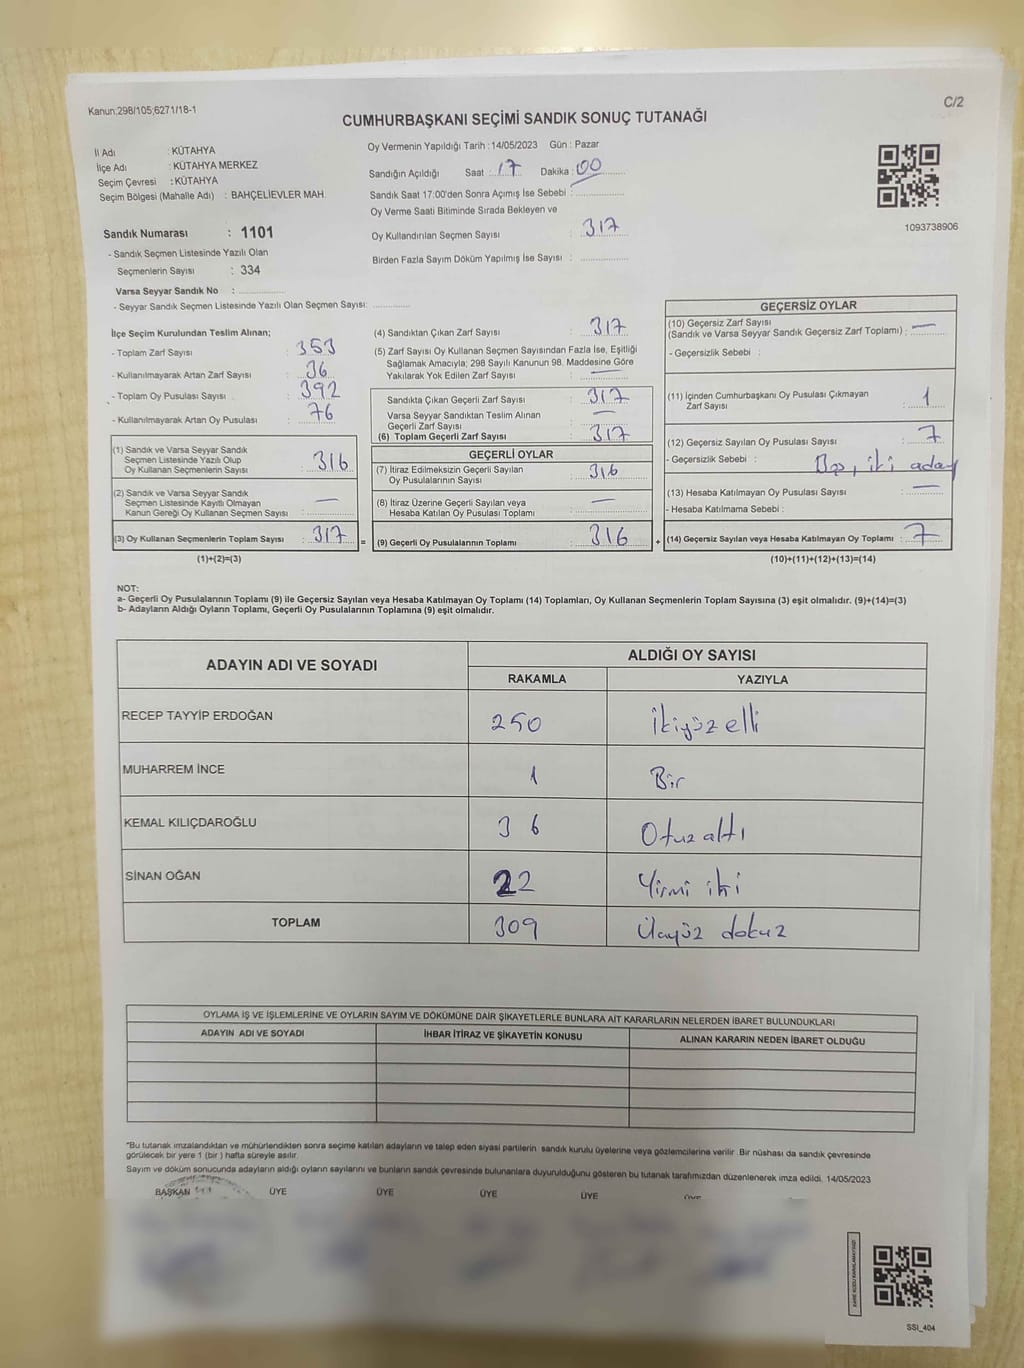 Kanun;298/105;6271/18-1
C/2
CUMHURBAŞKANI SEÇİMİ SANDIK SONUÇ TUTANAĞI
İl Adı : KÜTAHYA
İlçe Adı : KÜTAHYA MERKEZ
Seçim Çevresi : KÜTAHYA
Seçim Bölgesi (Mahalle Adı) : BAHÇELİEVLER MAH.
Sandık Numarası : 1101
- Sandık Seçmen Listesinde Yazılı Olan
Seçmenlerin Sayısı : 334
Varsa Seyyar Sandık No :
- Seyyar Sandık Seçmen Listesinde Yazılı Olan Seçmen Sayısı:
Oy Vermenin Yapıldığı Tarih : 14/05/2023 Gün : Pazar
Sandığın Açıldığı Saat : 17 Dakika : 00
Sandık Saat 17:00'den Sonra Açımış İse Sebebi :
Oy Verme Saati Bitiminde Sırada Bekleyen ve
Oy Kullandırılan Seçmen Sayısı : 317
Birden Fazla Sayım Döküm Yapılmış İse Sayısı :
1093738906
İlçe Seçim Kurulundan Teslim Alınan;
- Toplam Zarf Sayısı : 353
- Kullanılmayarak Artan Zarf Sayısı : 36
- Toplam Oy Pusulası Sayısı : 392
- Kullanılmayarak Artan Oy Pusulası : 76
(1) Sandık ve Varsa Seyyar Sandık
Seçmen Listesinde Yazılı Olup
Oy Kullanan Seçmenlerin Sayısı : 316
(2) Sandık ve Varsa Seyyar Sandık
Seçmen Listesinde Kayıtlı Olmayan
Kanun Gereği Oy Kullanan Seçmen Sayısı : —
(3) Oy Kullanan Seçmenlerin Toplam Sayısı : 317
(1)+(2)=(3)
(4) Sandıktan Çıkan Zarf Sayısı : 317
(5) Zarf Sayısı Oy Kullanan Seçmen Sayısından Fazla İse, Eşitliği
Sağlamak Amacıyla; 298 Sayılı Kanunun 98. Maddesine Göre
Yakılarak Yok Edilen Zarf Sayısı : —
Sandıkta Çıkan Geçerli Zarf Sayısı : 317
Varsa Seyyar Sandıktan Teslim Alınan
Geçerli Zarf Sayısı : —
(6) Toplam Geçerli Zarf Sayısı : 317
GEÇERLİ OYLAR
(7) İtiraz Edilmeksizin Geçerli Sayılan
Oy Pusulasının Sayısı : 316
(8) İtiraz Üzerine Geçerli Sayılan veya
Hesaba Katılan Oy Pusulası Toplamı : —
= (9) Geçerli Oy Pusulalarının Toplamı : 316
GEÇERSİZ OYLAR
(10) Geçersiz Zarf Sayısı
(Sandık ve Varsa Seyyar Sandık Geçersiz Zarf Toplamı) : —
- Geçersizlik Sebebi :
(11) İçinden Cumhurbaşkanı Oy Pusulası Çıkmayan
Zarf Sayısı : 1
(12) Geçersiz Sayılan Oy Pusulası Sayısı : 7
- Geçersizlik Sebebi : Boş, iki aday
(13) Hesaba Katılmayan Oy Pusulası Sayısı : —
- Hesaba Katılmama Sebebi :
+ (14) Geçersiz Sayılan veya Hesaba Katılmayan Oy Toplamı : 7
(10)+(11)+(12)+(13)=(14)
NOT:
a- Geçerli Oy Pusulalarının Toplamı (9) ile Geçersiz Sayılan veya Hesaba Katılmayan Oy Toplamı (14) Toplamları, Oy Kullanan Seçmenlerin Toplam Sayısına (3) eşit olmalıdır. (9)+(14)=(3)
b- Adayların Aldığı Oyların Toplamı, Geçerli Oy Pusulalarının Toplamına (9) eşit olmalıdır.
ADAYIN ADI VE SOYADI ALDIĞI OY SAYISI
RAKAMLA YAZIYLA
RECEP TAYYİP ERDOĞAN 250 İkiyüz elli
MUHARREM İNCE 1 Bir
KEMAL KILIÇDAROĞLU 36 Otuz altı
SİNAN OĞAN 22 Yirmi iki
TOPLAM 309 Üçyüz dokuz
OYLAMA İŞ VE İŞLEMLERİNE VE OYLARIN SAYIM VE DÖKÜMÜNE DAİR ŞİKAYETLERLE BUNLARA AİT KARARLARIN NELERDEN İBARET BULUNDUKLARI
ADAYIN ADI VE SOYADI İHBAR İTİRAZ VE ŞİKAYETİN KONUSU ALINAN KARARIN NEDEN İBARET OLDUĞU
"Bu tutanak imzalandıktan ve mühürlendikten sonra seçime katılan adayların ve talep eden siyasi partilerin sandık kurulu üyelerine veya gözlemcilerine verilir. Bir nüshası da sandık çevresinde
görülecek bir yere 1 (bir) hafta süreyle asılır.
Sayım ve döküm sonucunda adayların aldığı oyların sayılarını ve bunların sandık çevresinde bulunanlara duyurulduğunu gösteren bu tutanak tarafımızdan düzenlenerek imza edildi. 14/05/2023
BAŞKAN ÜYE ÜYE ÜYE ÜYE ÜYE
SSI_404